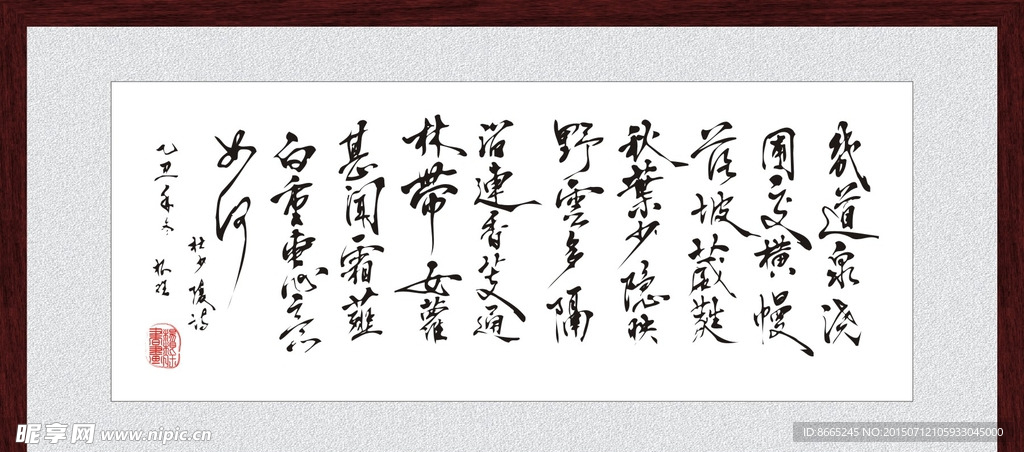 幾道泉浇
圃交横幔
落坡葳蕤
秋葉少隐映
野雲多隔
沼連香芰通
林帶女蘿
甚聞霜薤
白重惠意
如何
杜少陵诗
乙丑年冬
昵享网 www.nipic.cn
ID:8665245 NO:20150712105933045000